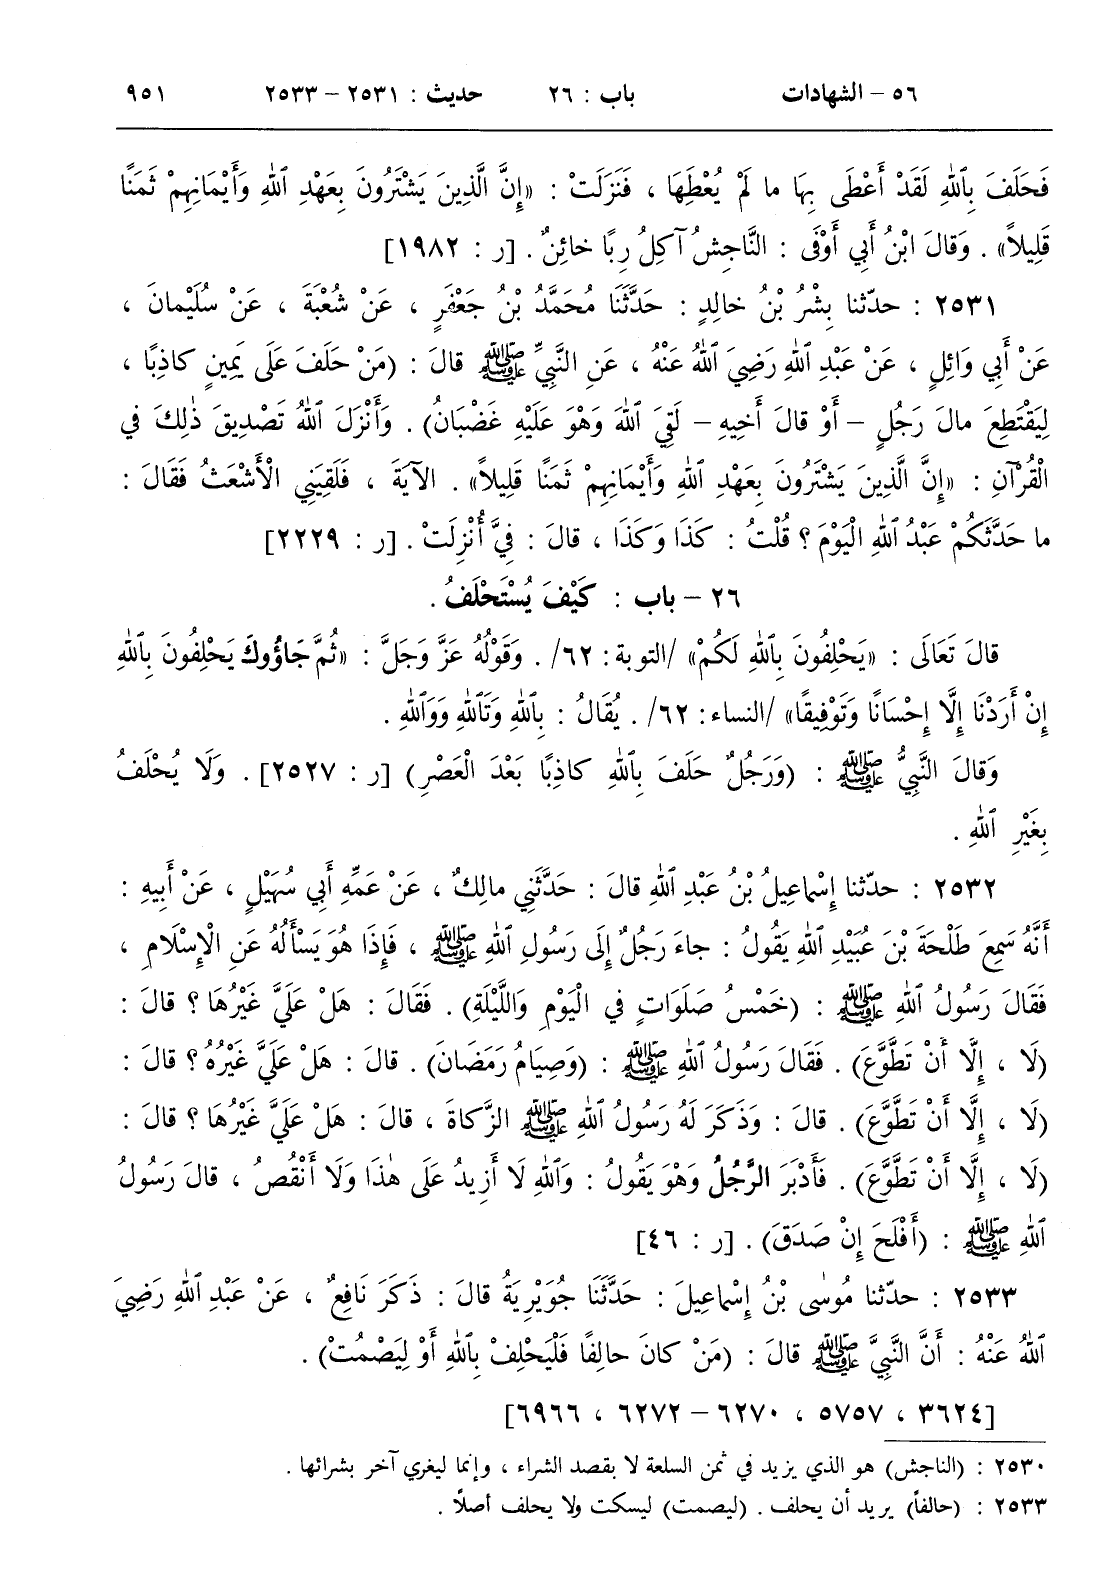 ٥٦ – الشهادات باب : ٢٦ حديث : ٢٥٣١ – ٢٥٣٣ ٩٥١
فَحَلَفَ بِٱللهِ لَقَدْ أَعْطَى بِهَا ما لَمْ يُعْطِهَا ، فَنَزَلَتْ : «إِنَّ الَّذِينَ يَشْتَرُونَ بِعَهْدِ ٱللهِ وَأَيْمَانِهِمْ ثَمَنًا
قَلِيلاً» . وَقالَ ابْنُ أَبِي أَوْفَى : النَّاجِشُ آكِلُ رِبًا خائِنٌ . [ر : ١٩٨٢]
٢٥٣١ : حدّثنا بِشْرُ بْنُ خالِدٍ : حَدَّثَنَا مُحَمَّدُ بْنُ جَعْفَرٍ ، عَنْ شُعْبَةَ ، عَنْ سُلَيْمانَ ،
عَنْ أَبِي وَائِلٍ ، عَنْ عَبْدِ ٱللهِ رَضِيَ ٱللهُ عَنْهُ ، عَنِ النَّبِيِّ ﷺ قالَ : (مَنْ حَلَفَ عَلَى يَمِينٍ كاذِبًا ،
لِيَقْتَطِعَ مالَ رَجُلٍ – أَوْ قالَ أَخِيهِ – لَقِيَ ٱللهَ وَهْوَ عَلَيْهِ غَضْبَانُ) . وَأَنْزَلَ ٱللهُ تَصْدِيقَ ذٰلِكَ في
الْقُرْآنِ : «إِنَّ الَّذِينَ يَشْتَرُونَ بِعَهْدِ ٱللهِ وَأَيْمَانِهِمْ ثَمَنًا قَلِيلاً» . الآيَةَ ، فَلَقِيَنِي الْأَشْعَثُ فَقَالَ :
ما حَدَّثَكُمْ عَبْدُ ٱللهِ الْيَوْمَ ؟ قُلْتُ : كَذَا وَكَذَا ، قالَ : فِيَّ أُنْزِلَتْ . [ر : ٢٢٢٩]
٢٦ – باب : كَيْفَ يُسْتَحْلَفُ .
قالَ تَعَالَى : «يَحْلِفُونَ بِٱللهِ لَكُمْ» /التوبة: ٦٢/ . وَقَوْلُهُ عَزَّ وَجَلَّ : «ثُمَّ جَاؤُوكَ يَحْلِفُونَ بِٱللهِ
إِنْ أَرَدْنَا إِلَّا إِحْسَانًا وَتَوْفِيقًا» /النساء: ٦٢/ . يُقَالُ : بِٱللهِ وَتَٱللهِ وَوَٱللهِ .
وَقالَ النَّبِيُّ ﷺ : (وَرَجُلٌ حَلَفَ بِٱللهِ كاذِبًا بَعْدَ الْعَصْرِ) [ر : ٢٥٢٧] . وَلَا يُحْلَفُ
بِغَيْرِ ٱللهِ .
٢٥٣٢ : حدّثنا إِسْماعِيلُ بْنُ عَبْدِ ٱللهِ قالَ : حَدَّثَنِي مالِكٌ ، عَنْ عَمِّهِ أَبِي سُهَيْلٍ ، عَنْ أَبِيهِ :
أَنَّهُ سَمِعَ طَلْحَةَ بْنَ عُبَيْدِ ٱللهِ يَقُولُ : جاءَ رَجُلٌ إِلَى رَسُولِ ٱللهِ ﷺ ، فَإِذَا هُوَ يَسْأَلُهُ عَنِ الْإِسْلَامِ ،
فَقَالَ رَسُولُ ٱللهِ ﷺ : (خَمْسُ صَلَوَاتٍ في الْيَوْمِ وَاللَّيْلَةِ) . فَقَالَ : هَلْ عَلَيَّ غَيْرُهَا ؟ قالَ :
(لَا ، إِلَّا أَنْ تَطَّوَّعَ) . فَقَالَ رَسُولُ ٱللهِ ﷺ : (وَصِيَامُ رَمَضَانَ) . قالَ : هَلْ عَلَيَّ غَيْرُهُ ؟ قالَ :
(لَا ، إِلَّا أَنْ تَطَّوَّعَ) . قالَ : وَذَكَرَ لَهُ رَسُولُ ٱللهِ ﷺ الزَّكاةَ ، قالَ : هَلْ عَلَيَّ غَيْرُهَا ؟ قالَ :
(لَا ، إِلَّا أَنْ تَطَّوَّعَ) . فَأَدْبَرَ الرَّجُلُ وَهْوَ يَقُولُ : وَٱللهِ لَا أَزِيدُ عَلَى هٰذَا وَلَا أَنْقُصُ ، قالَ رَسُولُ
ٱللهِ ﷺ : (أَفْلَحَ إِنْ صَدَقَ) . [ر : ٤٦]
٢٥٣٣ : حدّثنا مُوسٰى بْنُ إِسْماعِيلَ : حَدَّثَنَا جُوَيْرِيَةُ قالَ : ذَكَرَ نَافِعٌ ، عَنْ عَبْدِ ٱللهِ رَضِيَ
ٱللهُ عَنْهُ : أَنَّ النَّبِيَّ ﷺ قالَ : (مَنْ كانَ حالِفًا فَلْيَحْلِفْ بِٱللهِ أَوْ لِيَصْمُتْ) .
[٣٦٢٤ ، ٥٧٥٧ ، ٦٢٧٠ – ٦٢٧٢ ، ٦٩٦٦]
٢٥٣٠ : (الناجش) هو الذي يزيد في ثمن السلعة لا بقصد الشراء ، وإنما ليغري آخر بشرائها .
٢٥٣٣ : (حالفاً) يريد أن يحلف . (ليصمت) ليسكت ولا يحلف أصلاً .